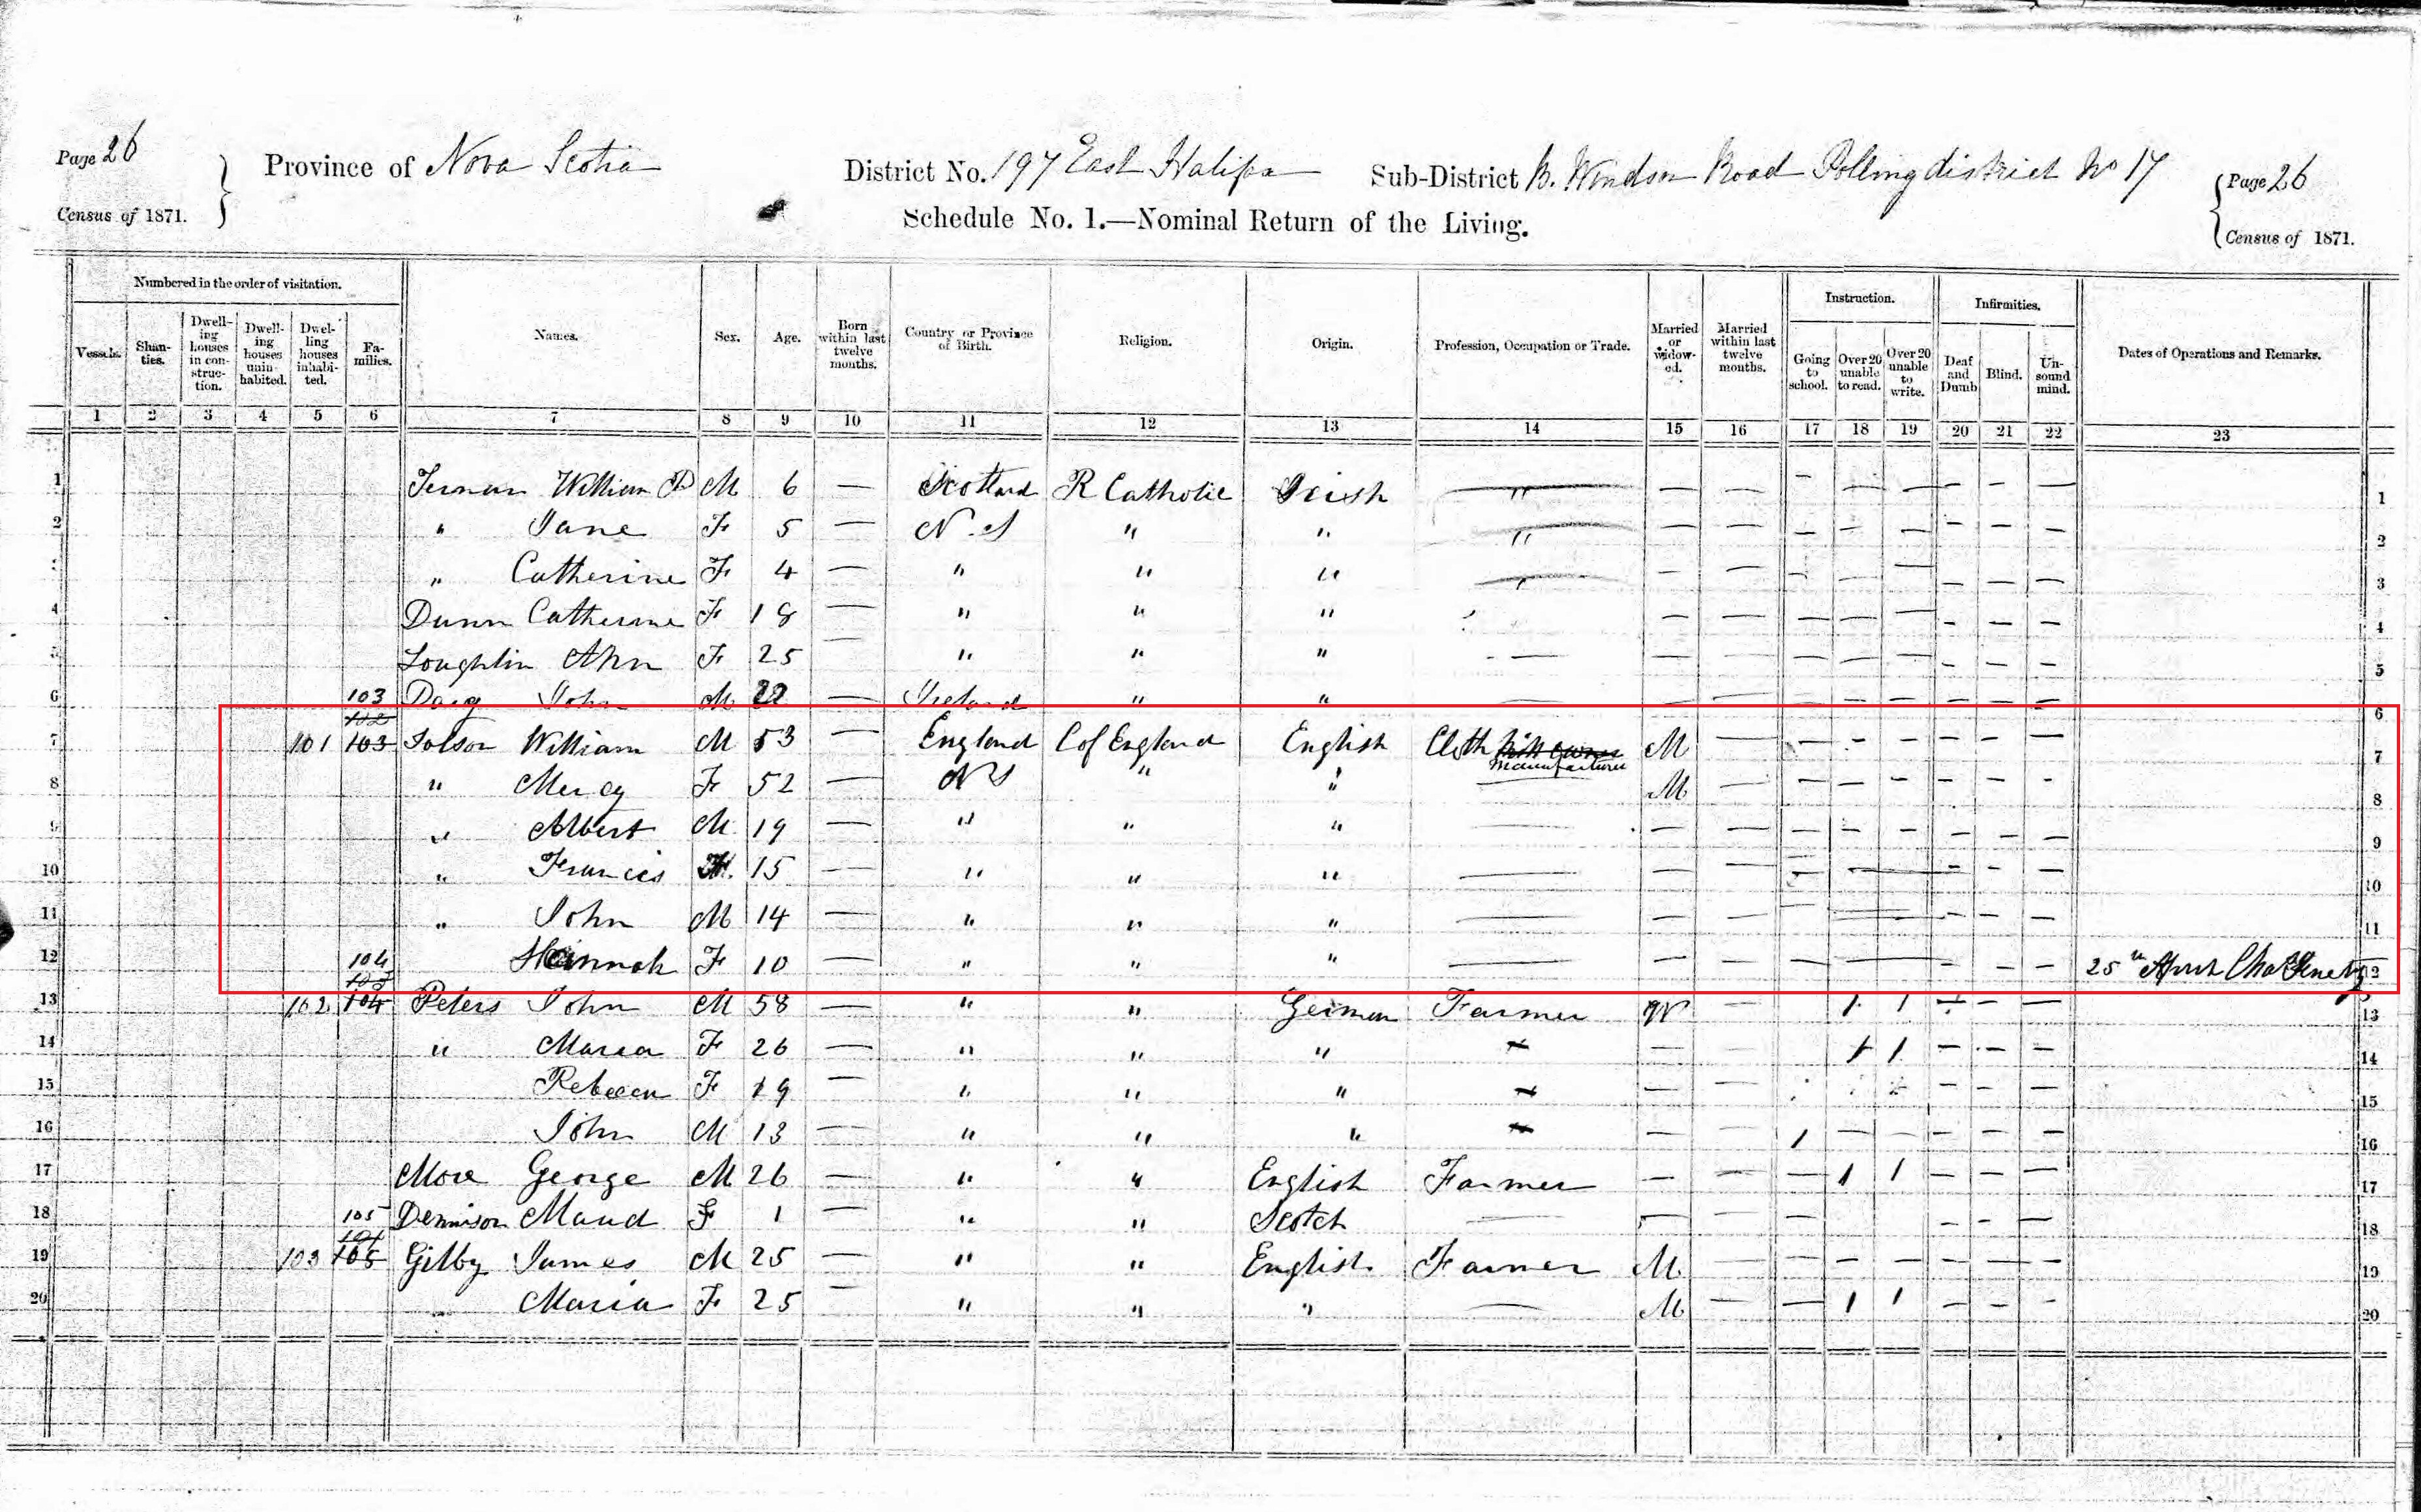 Page 26
Province of Nova Scotia
District No. 197 East Halifax
Sub-District B. Windsor Road Polling district No 17
Page 26
Census of 1871.
Schedule No. 1.—Nominal Return of the Living.
Census of 1871.
Numbered in the order of visitation.
Vessels.
Shan-ties.
Dwell-ing houses in con-struc-tion.
Dwell-ing houses unin-habited.
Dwel-ling houses inhabi-ted.
Fa-milies.
Names.
Sex.
Age.
Born within last twelve months.
Country or Province of Birth.
Religion.
Origin.
Profession, Occupation or Trade.
Married or widow-ed.
Married within last twelve months.
Instruction.
Going to school.
Over 20 unable to read.
Over 20 unable to write.
Infirmities.
Deaf and Dumb
Blind.
Un-sound mind.
Dates of Operations and Remarks.
1 2 3 4 5 6 7 8 9 10 11 12 13 14 15 16 17 18 19 20 21 22 23
1 William M 6 — Scotland R Catholic Irish " — — — — — — — — 1
2 " Jane F 5 — N.S " " " — — — — — — — — 2
3 " Catherine F 4 — " " " — — — — — — — — 3
4 Dunn Catherine F 18 — " " " — — — — — — — — 4
5 Loughlin Ann F 25 — " " " — — — — — — — — — 5
6 103 John M 22 — Ireland " " — — — — — — — — — 6
7 101 102 103 William M 53 — England C of England English Cloth Mill owner manufacturer M — — — — — — — 7
8 " Mercy F 52 — N S " " — M — — — — — — — 8
9 " Albert M 19 — " " " — — — — — — — — — 9
10 " Francis 15 — " " " — — — — — — — — — 10
11 " John M 14 — " " " — — — — — — — — — 11
12 104 Hannah F 10 — " " " — — — — — — 25th April Chas 12
13 102 103 104 Peters John M 58 — " " German Farmer W — 1 1 — — — 13
14 " Maria F 26 — " " " — — — 1 1 — — — 14
15 Rebecca F 19 — " " " — — — — — — 15
16 John M 13 — " " " — — — 1 — — — — — 16
17 More George M 26 — " " English Farmer — — — 1 1 — — — 17
18 105 Dennison Maud F 1 — " " Scotch — — — — — — — 18
19 103 104 105 Gilby James M 25 — " " English Farmer M — — — — — — — 19
20 " Maria F 25 — " " " — M — — 1 1 — — — 20